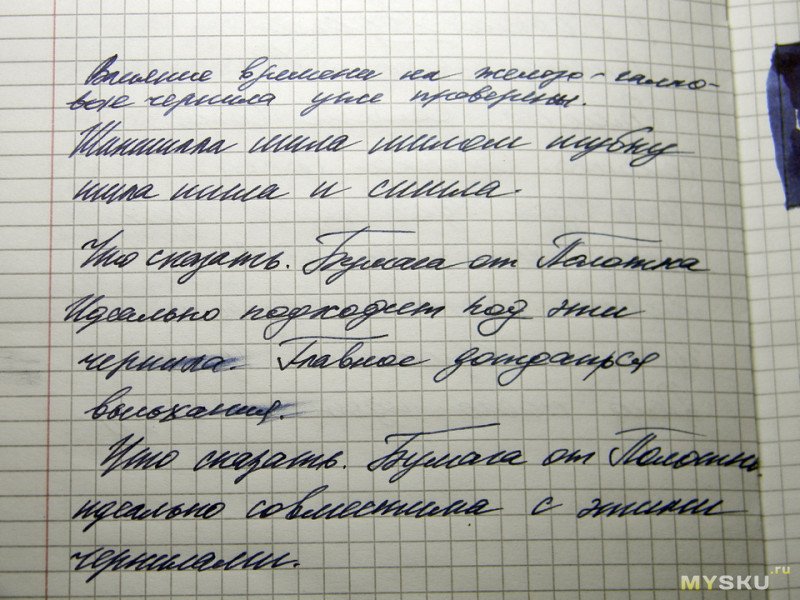 Влияние времени на железо-галло-
вые чернила уже проверены.
Шиншилла шила шилом шубку
шила шила и сшила.
Что сказать. Бумага от Полотна
Идеально подходит под эти
чернила. Главное дождаться
высыхания.
Что сказать. Бумага от Полотна
идеально совместима с этими
чернилами.
MYSKU.ru